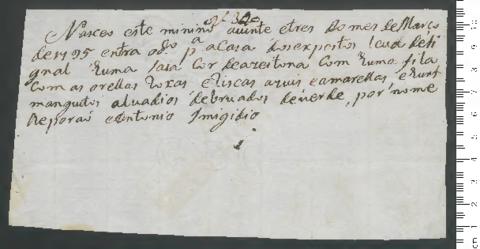 Nasceo este minino a vinte e tres do mes de Março
de 1795 entra od.º p.ª a Casa dos expostos leva de si
gnal huma saia Cor de azeitona Com huma fita
Com as orellas roxas e liscas azuis e amarellas e huns
manguitos alvadios debruados de verde, por nome
lhe porão Antonio Imigidio